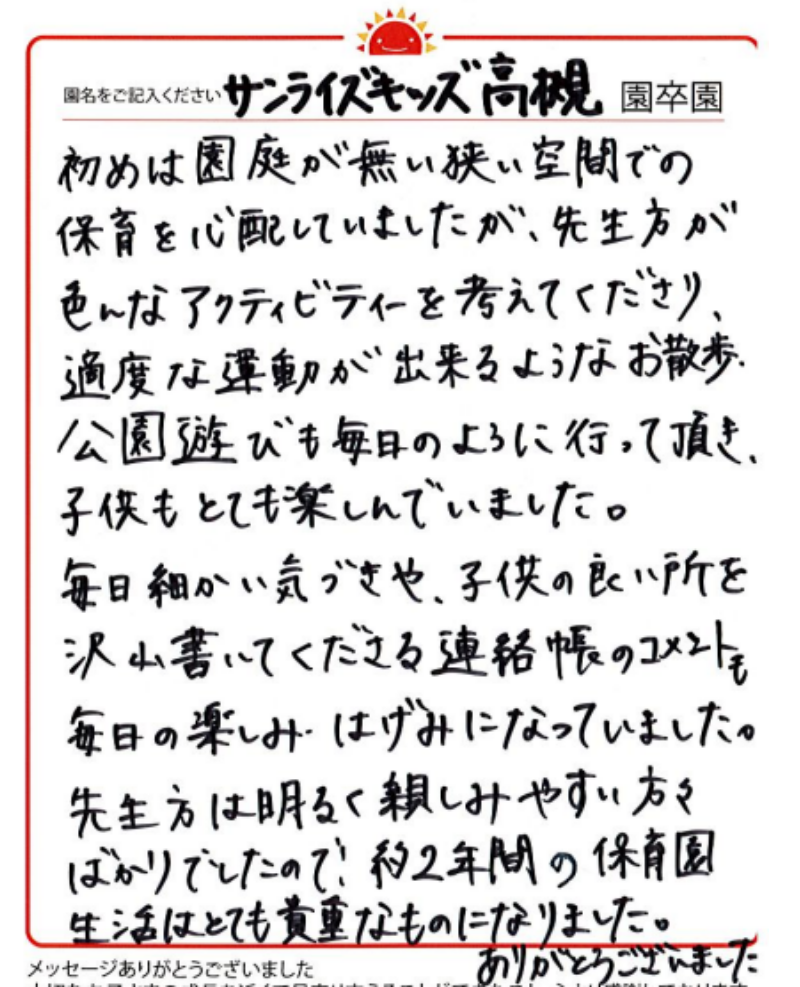 園名をご記入ください サンライズキッズ高槻 園卒園
初めは園庭が無い狭い空間での
保育を心配していましたが、先生方が
色んなアクティビティーを考えてくださり、
適度な運動が出来るようなお散歩・
公園遊びも毎日のように行って頂き、
子供もとても楽しんでいました。
毎日細かい気づきや、子供の良い所を
沢山書いてくださる連絡帳のコメントも
毎日の楽しみ・はげみになっていました。
先生方は明るく親しみやすい方々
ばかりでしたので、約2年間の保育園
生活はとても貴重なものになりました。
ありがとうございました
メッセージありがとうございました